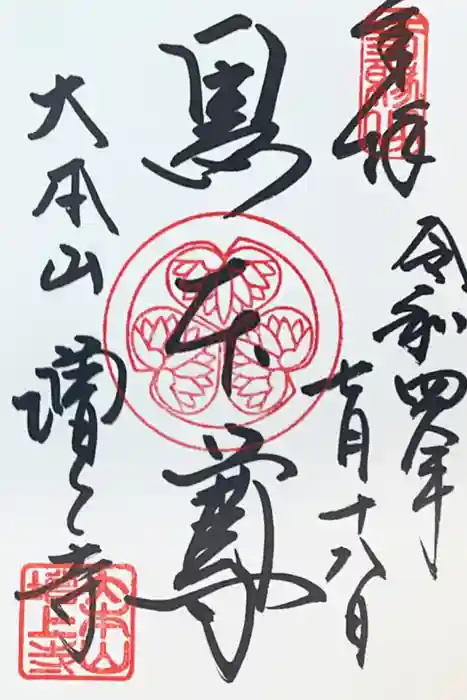 奉拝
令和四年
七月十八日
黒本尊
大本山
増上寺
大本山
増上寺